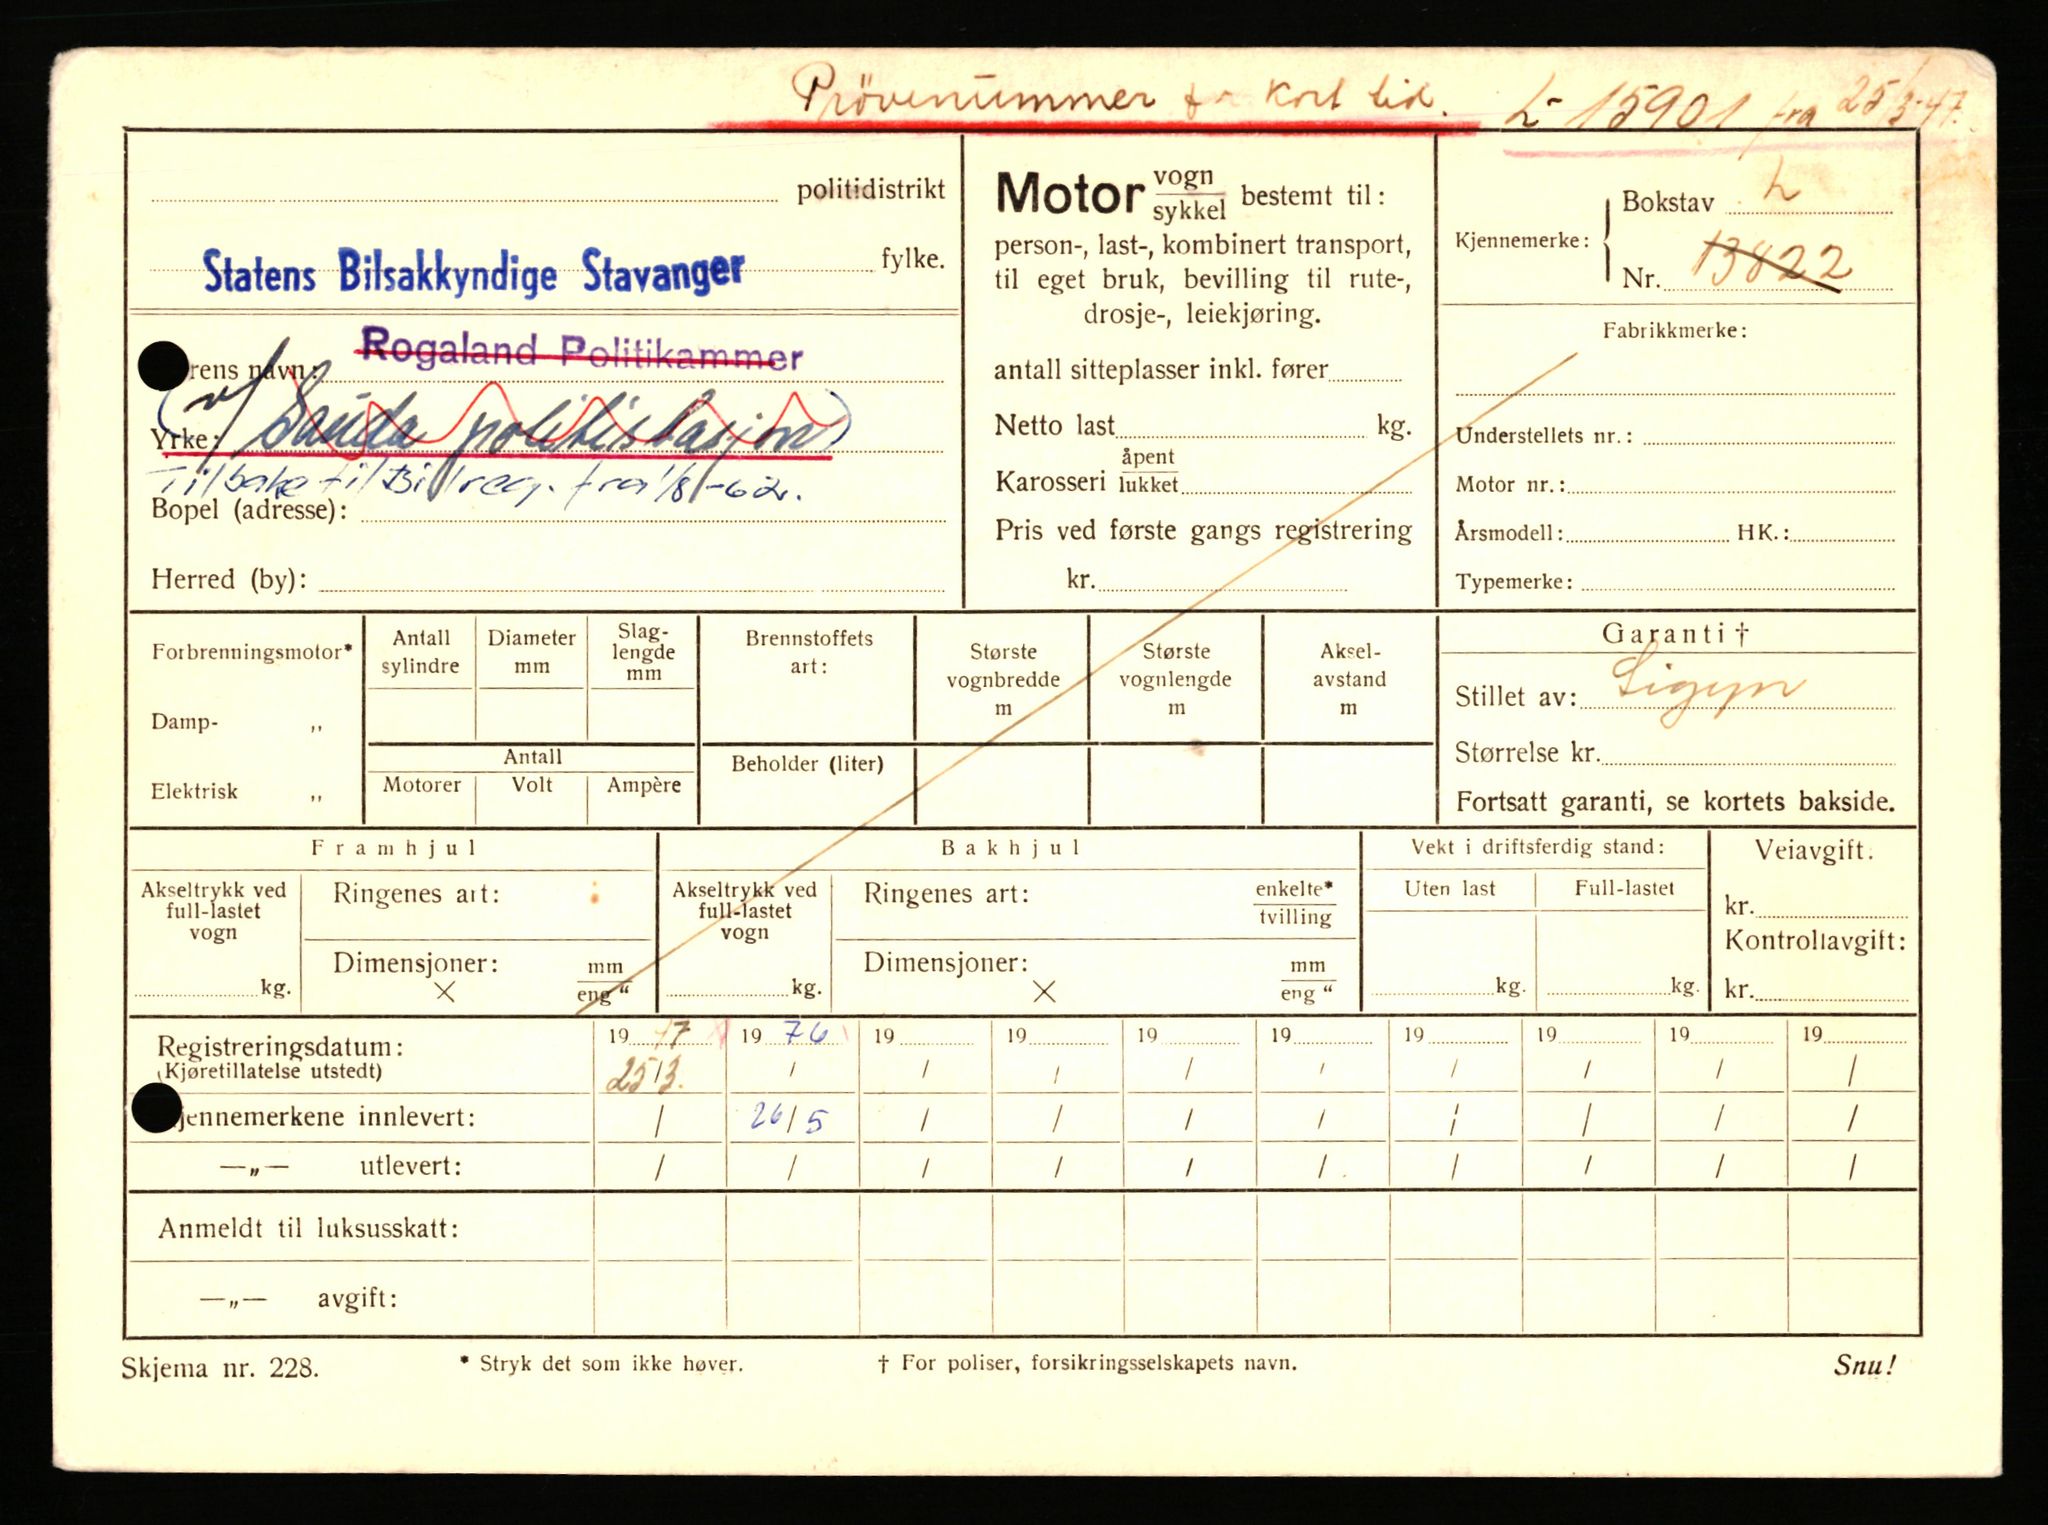 Prövenummer for kort tid. L- 15901 fra 25/3-47.
politidistrikt
Statens Bilsakkyndige Stavanger fylke.
Rogaland Politikammer
rens navn:
(v/ Sauda politistasjon)
Yrke:
Tilbake til Bilreg. fra 1/8-62.
Bopel (adresse):
Herred (by):
Motor vogn sykkel bestemt til:
person-, last-, kombinert transport,
til eget bruk, bevilling til rute-,
drosje-, leiekjøring.
antall sitteplasser inkl. fører
Netto last kg.
Karosseri åpent lukket
Pris ved første gangs registrering
kr.
Kjennemerke: Bokstav L
Nr. 13822
Fabrikkmerke:
Understellets nr.:
Motor nr.:
Årsmodell: HK.:
Typemerke:
Forbrenningsmotor*
Damp- „
Elektrisk „
Antall sylindre
Diameter mm
Slag-
lengde
mm
Antall
Motorer Volt Ampère
Brennstoffets
art:
Beholder (liter)
Største
vognbredde
m
Største
vognlengde
m
Aksel-
avstand
m
Garanti †
Stillet av: Sigyn
Størrelse kr.
Fortsatt garanti, se kortets bakside.
Framhjul
Akseltrykk ved
full-lastet
vogn
kg.
Ringenes art:
Dimensjoner: mm
× eng “
Bakhjul
Akseltrykk ved
full-lastet
vogn
kg.
Ringenes art: enkelte*
tvilling
Dimensjoner: mm
× eng “
Vekt i driftsferdig stand:
Uten last Full-lastet
kg. kg.
Veiavgift.
kr.
Kontrollavgift:
kr.
Registreringsdatum: 19 47 19 76 19 19 19 19 19 19 19 19
(Kjøretillatelse utstedt) 25/3. / / / / / / / / /
jennemerkene innlevert: / 26/5 / / / / / / / /
—„— utlevert: / / / / / / / / / /
Anmeldt til luksusskatt:
—„— avgift:
Skjema nr. 228. * Stryk det som ikke høver. † For poliser, forsikringsselskapets navn. Snu!